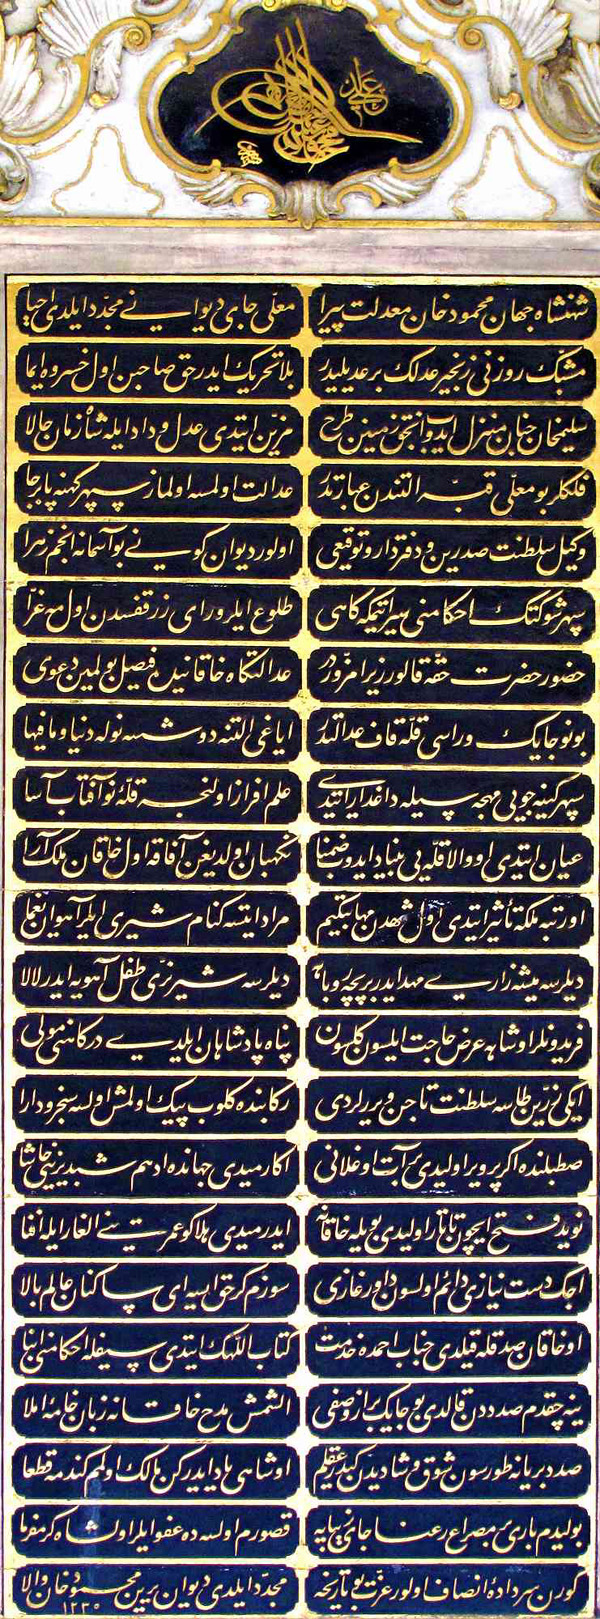 شهنشاه جهان محمود خان معدلت پیرا
معلّی جای دیوانی نے مجدّد ایلدی احیا
مشبّك روزنی زنجیر عدلك بر عدیلیدر
بلا تحریك ایدر حق صاحبن اول خسروه ایما
سلیمخان جنان منزل ایدوب انجق زمینن طرح
مزیّن ایتدی عدل و داد ایله شاه زمان حالا
فلكلر بو معلّی قبّه التندن عبارتدر
عدالت اولمسه اولماز سپهر كهنه پابرجا
وكیل سلطنت صدرین و دفتردار و توقیعی
اولور دیوان كونی نے بو آسمانه انجم زهرا
سپهر شوكتك احكامنی سیر ایتمكه كاهی
طلوع ایلر ورای زر قفسدن اول مه غرّا
حضور حضرت حقّه قالور زیرا مزوّر در
عدالتكاه خاقانیده فیصل بولمین دعوی
بو نوجایك وراسی قلّه قاف عدالتدر
ایاغی التنه دوشسه نوله دنیا و مافیها
سپهر كینه جویی مهجه سیله داغدار ایتدی
علم افراز اولنجه قلّۀ نو آفتاب آسا
عیان ایتدی او والا قلّه یی بنیاد ایدوب ضمنا
نكهبان اولدیغن آفاقه اول خاقان ملك آرا
او رتبه ملكه تأثیر ایتدی اول شهدن مهابت كیم
مراد ایتسه كنام شیری ایلر آهوان یغما
دیلرسه میشه زاری مهد ایدر بر بچه روباهه
دیلرسه شیر نرّی طفل آهویه ایدر لالا
فریدونلر او شاهه عرض حاجت ایلسون كلسون
پناه پادشاهان ایلدی دركاهنی مولی
ایكی زرّین طاسه سلطنت تاجن ویررلردی
ركابنده كلوب پیك اولمش اولسه سنجر و دارا
صطبلنده اكر پرویز اولیدی بر آت اوغلانی
اكا رمیدی جهانده ادهم شبدیزینی حاشا
نوید فتح ایچون تاتار اولیدی بویله خاقانه
ایدرمیدی هلاكو عمرینی الغار ایله افنا
آجك دست نیازی دائم اولسون داور غازی
سوزم كر حق ایسه ای ساكنان عالم بالا
او خاقان صد قله قیلدی جناب احمده خدمت
كتاب اللّهك ایتدی سیفله احكامنی ابقا
ینه چقدم صدددن قالدی بو جایك براز وصفی
التمش مدح خاقانه زبان خامه املا
صدد بر یانه طورسون شوق و شادیدن كیدر عقلم
او شاهی یاد ایدركن مالك اولمم كندمه قطعا
بولیدم باری بر مصراع رعنا جای زیبایه
قصورم اولسه ده عفو ایلر اول شاه كرمفرما
كورن سر دادۀ انصاف اولور عزّت بو تاریخه
مجدّد ایلدی دیوان یرین محمود خان والا
١٢٣٥